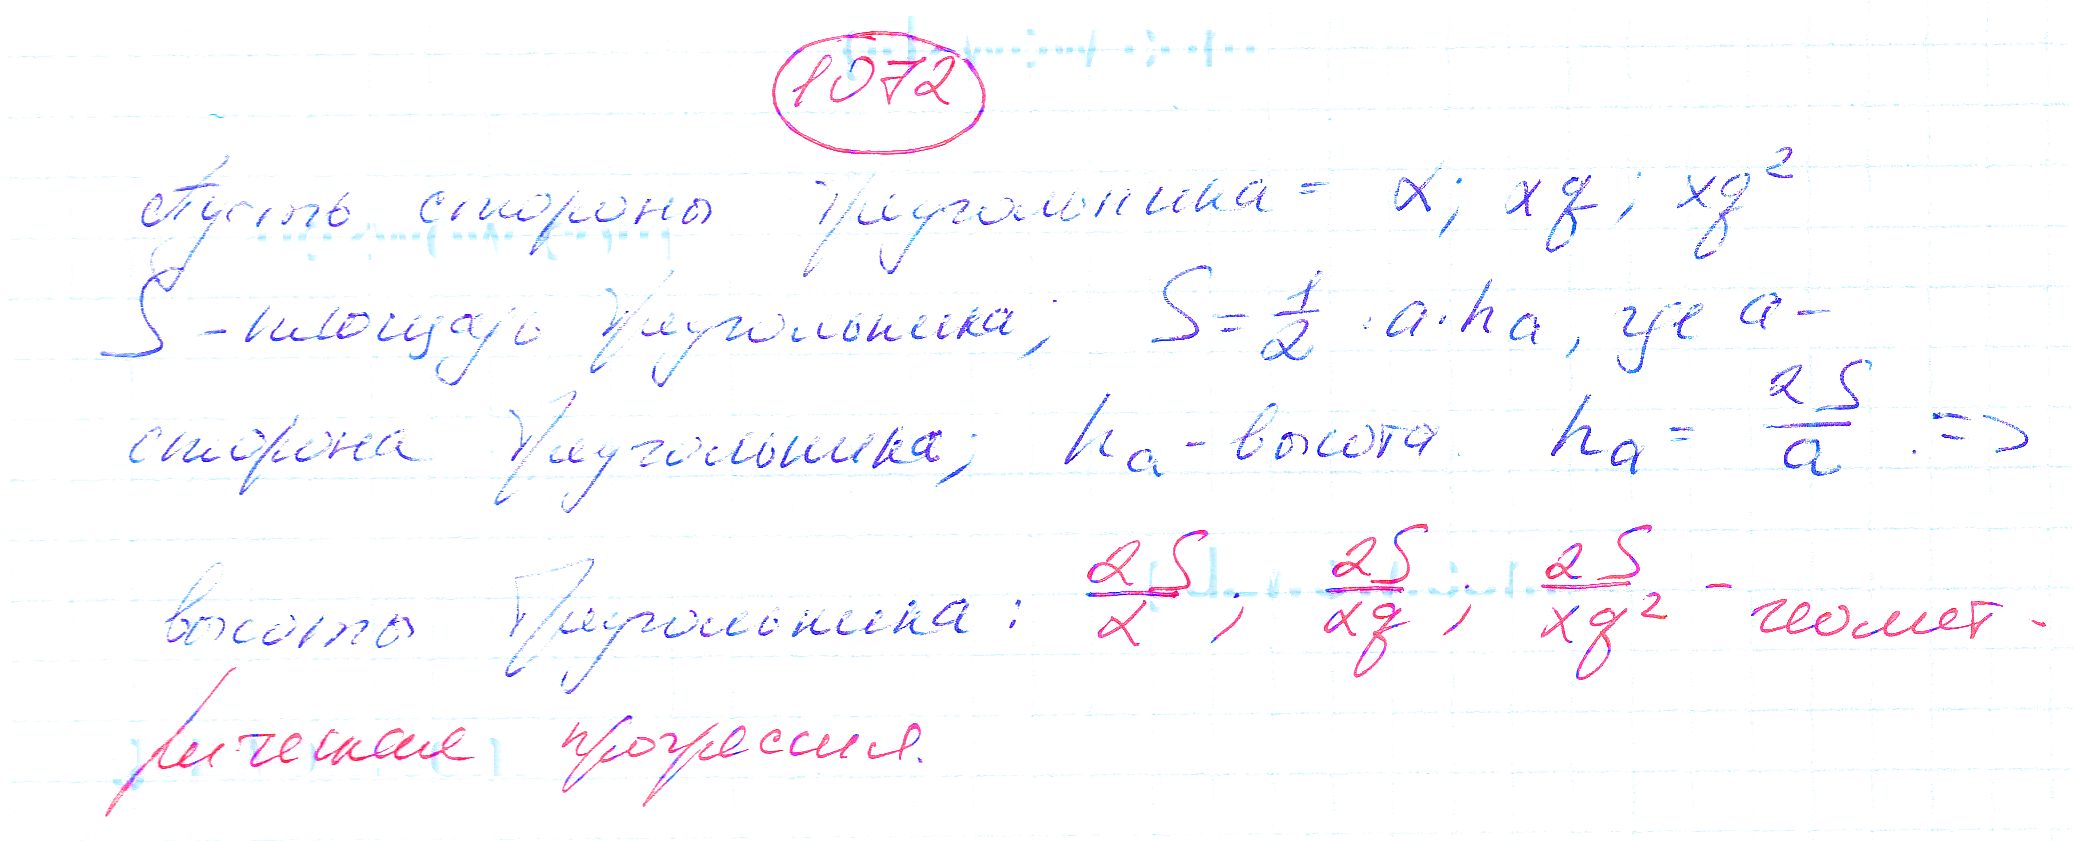 1072
Пусть стороны треугольника = x; xq; xq²
S - площадь треугольника; S = 1/2 · a · hₐ, где a -
сторона треугольника; hₐ - высота. hₐ = 2S/a. =>
высоты треугольника: 2S/x; 2S/xq; 2S/xq² - геомет-
рическая прогрессия.